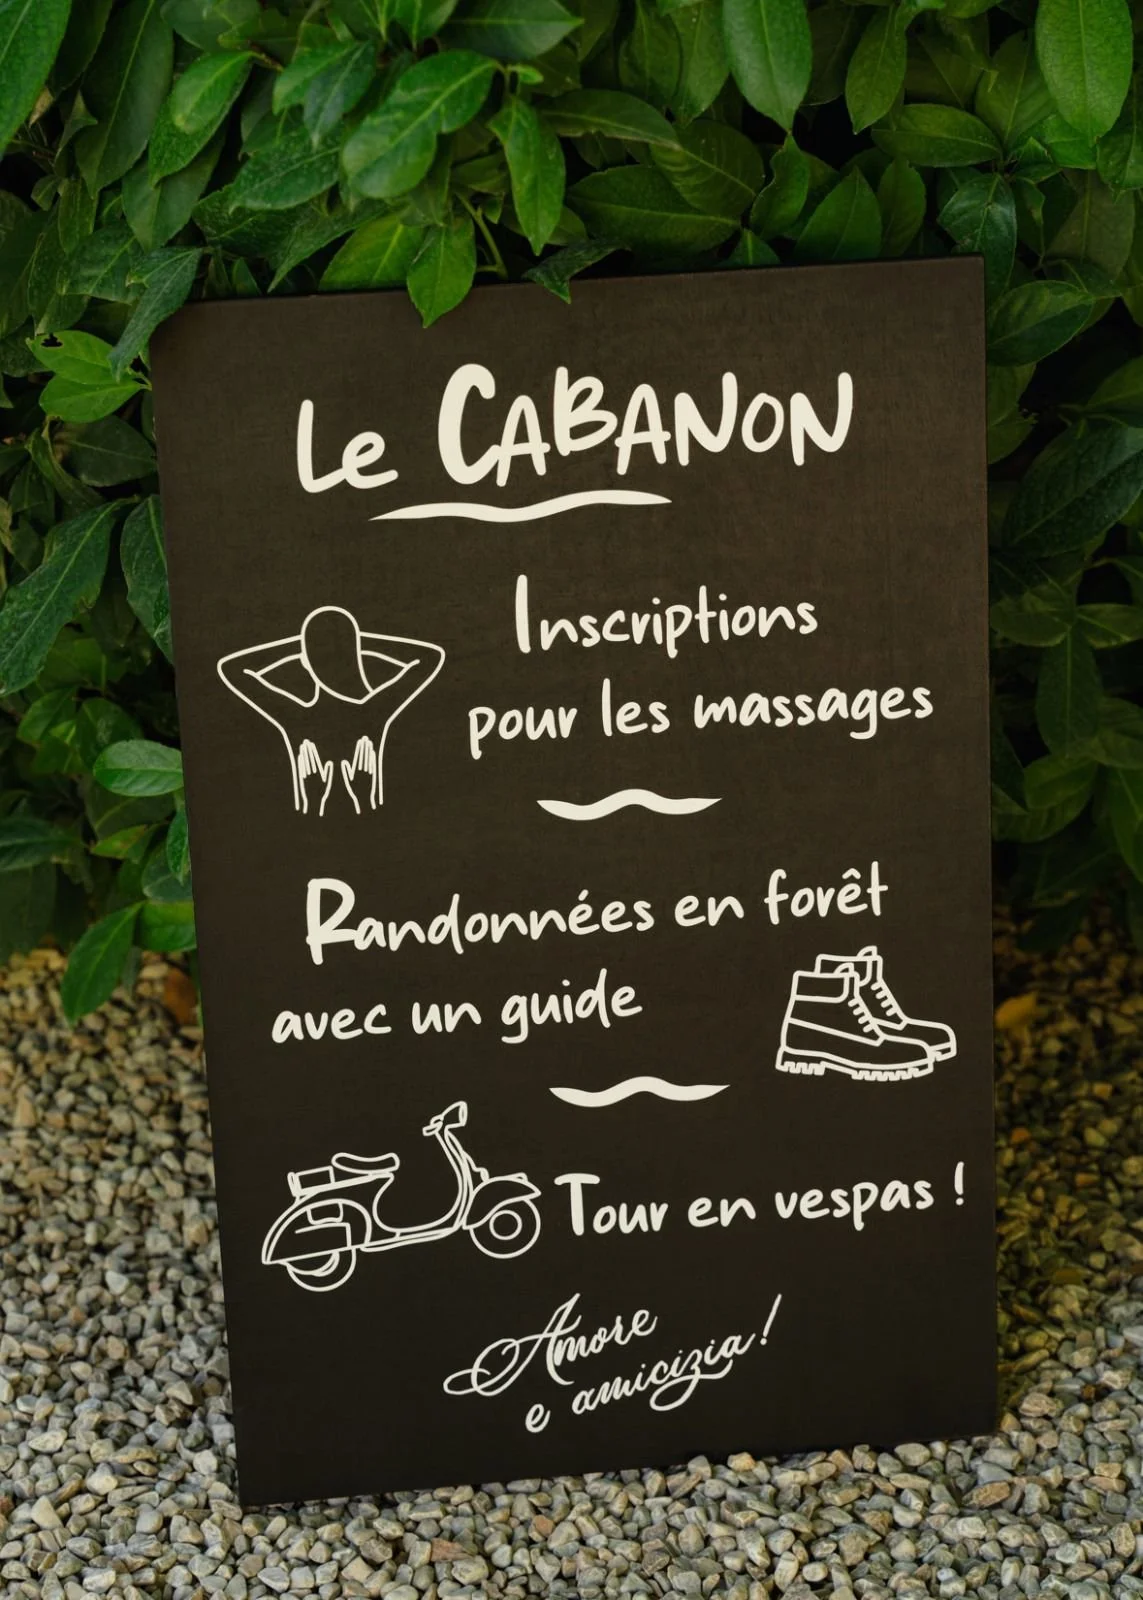 Le CABANON
Inscriptions
pour les massages
Randonnées en forêt
avec un guide
Tour en vespas !
Amore
e amicizia!